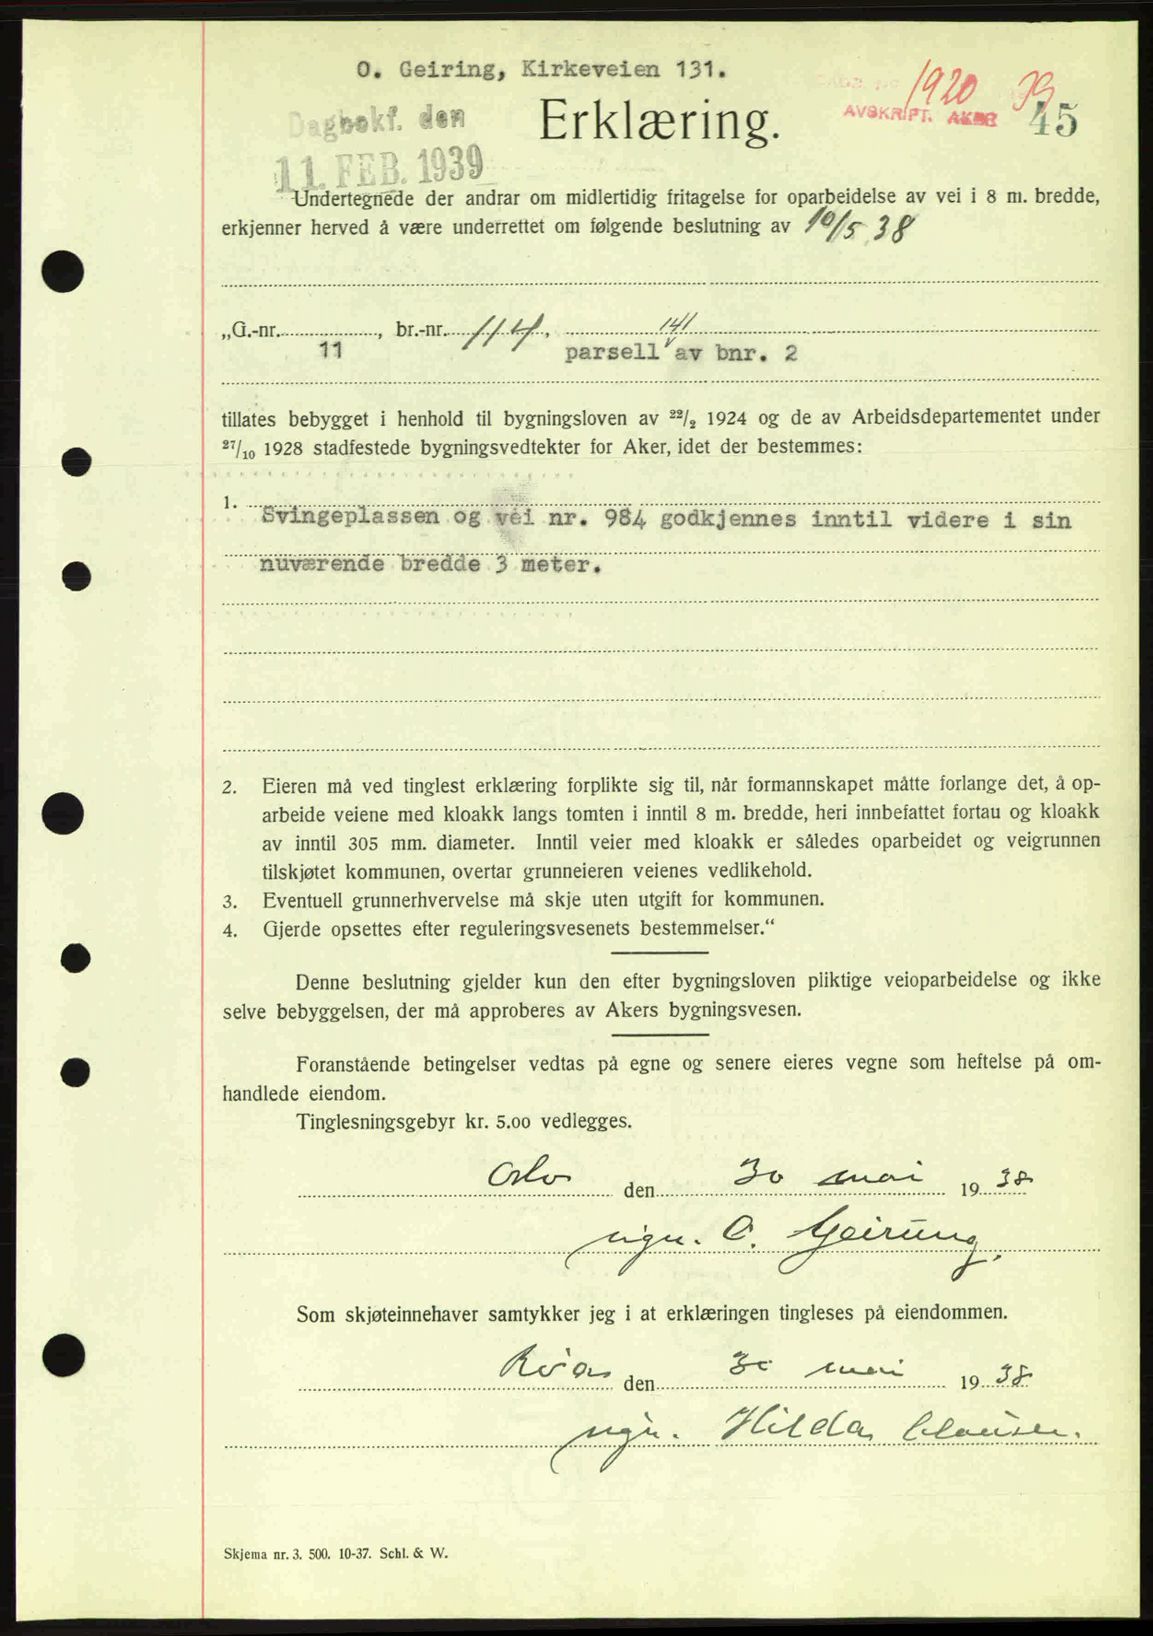 O. Geiring, Kirkeveien 131.
1920 39
AVSKRIFT. AKER
45
Dagbokf. den
11. FEB. 1939
Erklæring.
Undertegnede der andrar om midlertidig fritagelse for oparbeidelse av vei i 8 m. bredde,
erkjenner herved å være underrettet om følgende beslutning av 10/5 38
„G.-nr. 11, br.-nr. 114, 141
parsell av bnr. 2
tillates bebygget i henhold til bygningsloven av 22/2 1924 og de av Arbeidsdepartementet under
27/10 1928 stadfestede bygningsvedtekter for Aker, idet der bestemmes:
1. Svingeplassen og vei nr. 984 godkjennes inntil videre i sin
nuværende bredde 3 meter.
2. Eieren må ved tinglest erklæring forplikte sig til, når formannskapet måtte forlange det, å op-
arbeide veiene med kloakk langs tomten i inntil 8 m. bredde, heri innbefattet fortau og kloakk
av inntil 305 mm. diameter. Inntil veier med kloakk er således oparbeidet og veigrunnen
tilskjøtet kommunen, overtar grunneieren veienes vedlikehold.
3. Eventuell grunnerhvervelse må skje uten utgift for kommunen.
4. Gjerde opsettes efter reguleringsvesenets bestemmelser.“
Denne beslutning gjelder kun den efter bygningsloven pliktige veioparbeidelse og ikke
selve bebyggelsen, der må approberes av Akers bygningsvesen.
Foranstående betingelser vedtas på egne og senere eieres vegne som heftelse på om-
handlede eiendom.
Tinglesningsgebyr kr. 5.00 vedlegges.
Oslo den 30 mai 1938
sign. O. Geiring.
Som skjøteinnehaver samtykker jeg i at erklæringen tingleses på eiendommen.
Røa den 30 mai 1938
sign. Hilda Clausen.
Skjema nr. 3. 500. 10-37. Schl. & W.